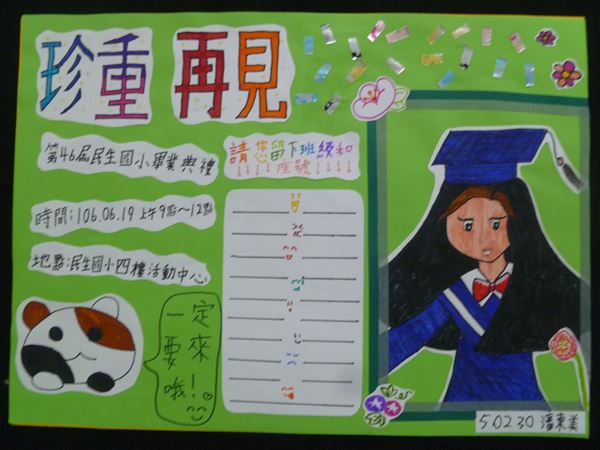 珍重再見
第46屆民生國小畢業典禮
時間:106.06.19 上午9點~12點
地點:民生國小四樓活動中心
請您留下班級和
↓↓↓↓座號↓↓↓↓
一定
要來
哦!
50230 潘東美